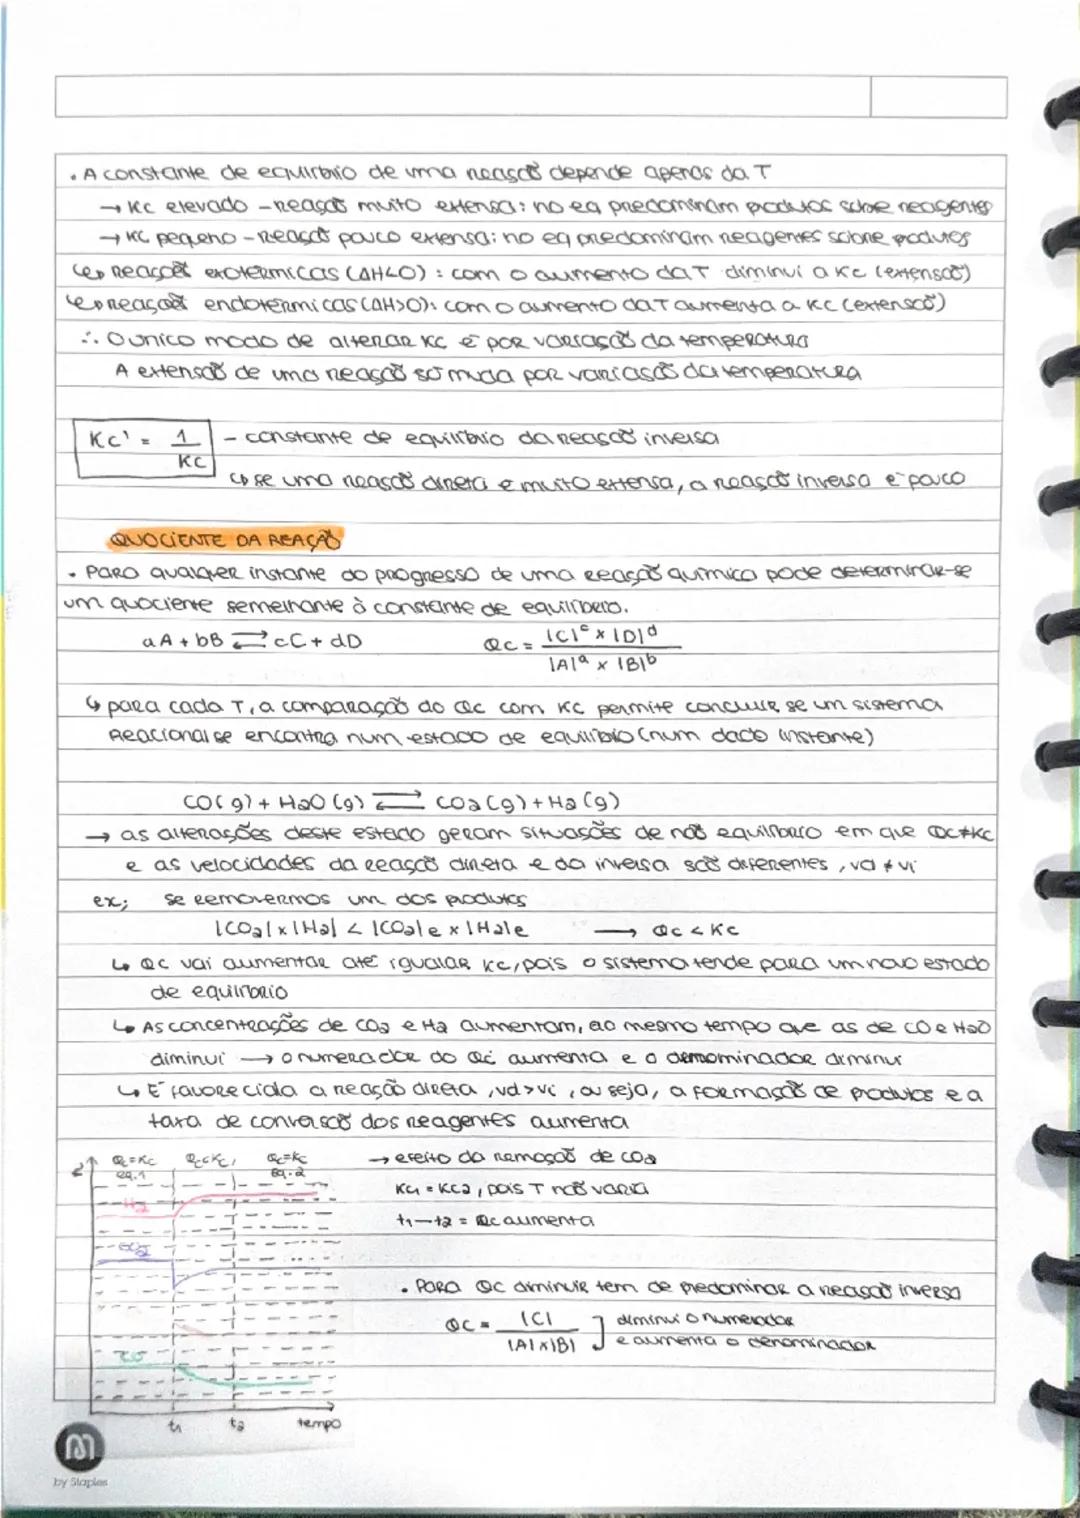 . A constante de equilíbrio de uma reação depende apenas da T
→ Kc elevado - Reação muito extensa: no eq predominam produtos sobre reagentes
→ Kc pequeno - Reação pouco extensa: no eq predominam reagentes sobre produtos
↳ Reações exotérmicas (ΔH<0): com o aumento da T diminui a Kc (extensão)
↳ reações endotérmicas (ΔH>0): com o aumento da T aumenta a Kc (extensão)
∴ O único modo de alterar Kc é por variação da temperatura
A extensão de uma reação só muda por variação da temperatura
Kc' = 1/Kc - constante de equilíbrio da reação inversa
↳ se uma reação direta e muito extensa, a reação inversa é pouco
QUOCIENTE DA REAÇÃO
. Para qualquer instante do progresso de uma reação química pode determinar-se
um quociente semelhante à constante de equilíbrio.
aA + bB ⇄ cC + dD Qc = |C|^c x |D|^d / |A|^a x |B|^b
↳ para cada T, a comparação do Qc com Kc permite concluir se um sistema
Reacional se encontra num estado de equilíbrio (num dado instante)
CO(g) + H2O (g) ⇄ CO2 (g) + H2 (g)
→ as alterações deste estado geram situações de não equilíbrio em que Qc≠Kc
e as velocidades da reação direta e da inversa são diferentes, vd ≠ vi
ex; se removermos um dos produtos
|CO2| x |H2| < |CO2|e x |H2|e → Qc < Kc
↳ Qc vai aumentar até igualar Kc, pois o sistema tende para um novo estado
de equilíbrio
↳ As concentrações de CO2 e H2 aumentam, ao mesmo tempo que as de CO e H2O
diminui → o numerador do Qc aumenta e o denominador diminui
↳ É favorecida a reação direta, vd>vi, ou seja, a formação de produtos e a
taxa de conversão dos reagentes aumenta
Qc=Kc Qc<Kc, Qc=Kc
eq.1 eq.2
H2
CO2
CO
t1 t2 tempo
→ efeito da remoção de CO2
Kc1 = Kc2, pois T não varia
t1-t2 = Qc aumenta
. Para Qc diminuir tem de predominar a reação inversa
Qc = |C| / |A|x|B| ] diminui o numerador
e aumenta o denominador
by Staples